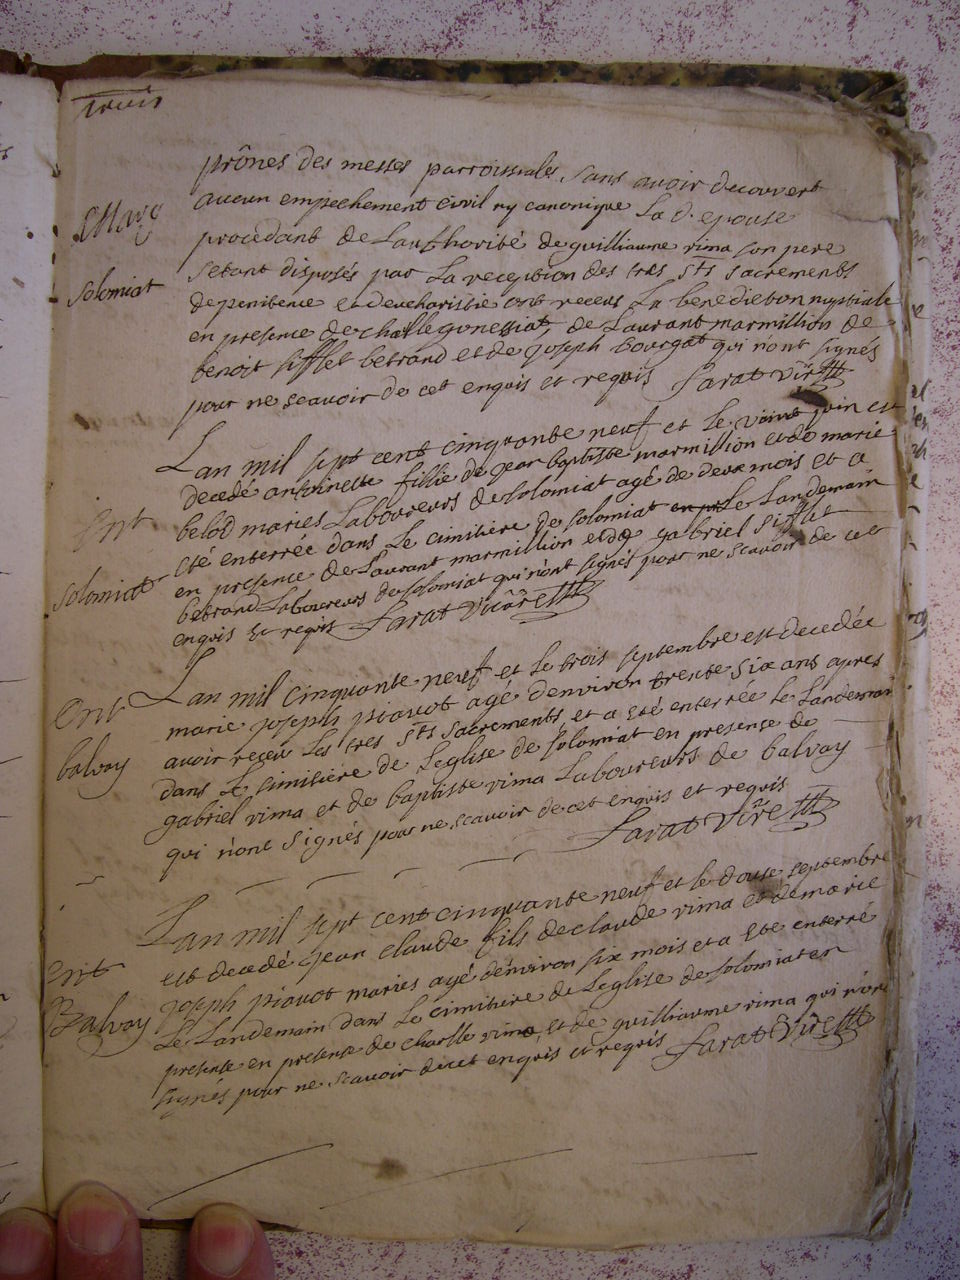 prônes des messes parroissiales sans avoir decouvert
aucun empechement civil ny canonique La d. epouse
procedant de Lauthorité de guilliaume rima son pere
Solomiat
setant disposés par La reception des tres sts sacrements
de penitence et deucharistie ont receus La benediction nuptiale
en presence de de Laurant marmillion de
benoit sifflet betrand et de joseph bourgat qui n'ont signés
pour ne scavoir de cet enquis et requis Sarat vire
Lan mil sept cent cinquante neuf et le vaint juin est
decedé anthoinette fillie de jean baptiste marmillion et de marie
Ent
belod mariés Laboureurs de solomiat agé de deux mois et a
eté enterrée dans Le cimitiére de solomiat Le Landemain
Solomiat
en presence de Laurant marmillion et de gabriel sifflet
betrand Laboureurs de solomiat qui n'ont signés pour ne scavoir de cet
enquis Et requis Sarat vicaire
Lan mil cinquante neuf et le trois septembre est decedée
Ent
marie joseph piavot agé denviron trente six ans apres
avoir receu Les tres sts sacrements et a eté enterrée le Landemain
balvay
dans Le cimitiére de Leglise de solomiat en presence de
gabriel rima et de baptiste rima Laboureurs de balvay
qui n'ont signés pour ne scavoir de cet enquis et requis
Sarat vire
Lan mil sept cent cinquante neuf et le douse septembre
est decedé jean claude fils de claude rima et de marie
Ent
joseph piavot mariés agé denviron six mois et a eté enterré
Balvay
Le Landemain dans Le cimitiere de Leglise de solomiat en
presente en presence de charlle rima et de guilliaume rima qui n'ont
signés pour ne scavoir de cet enquis et requis Sarat vire